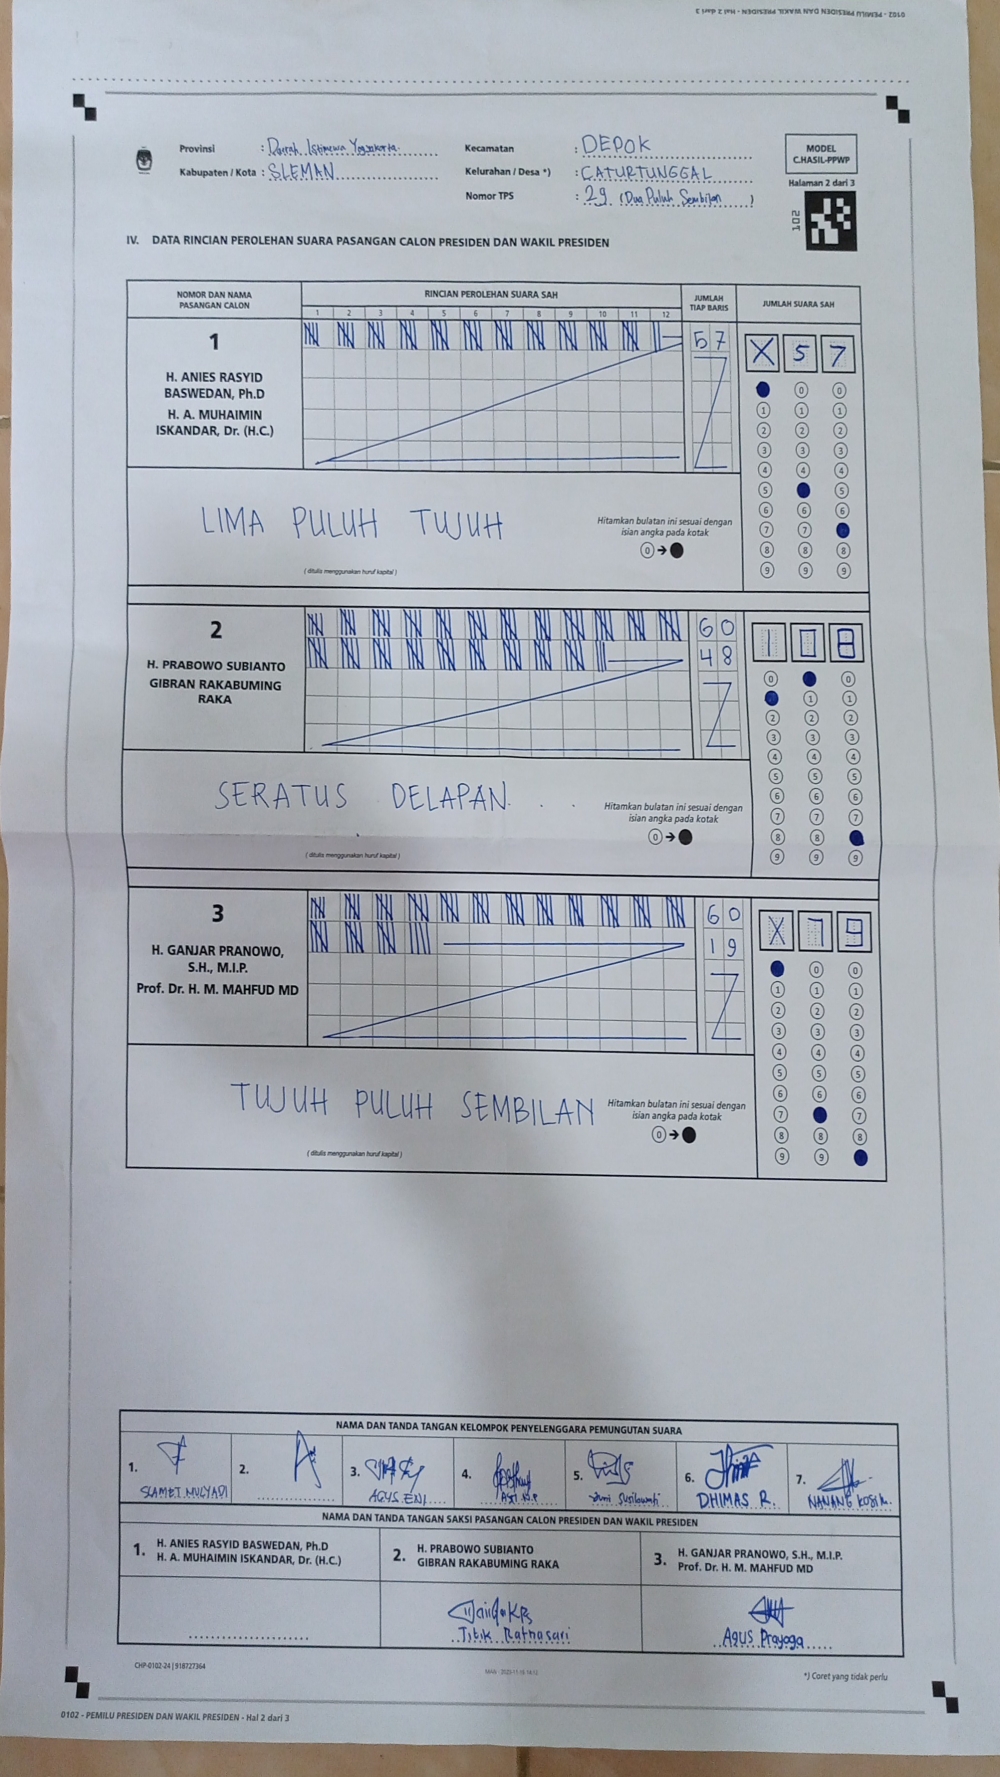 0102 - PEMILU PRESIDEN DAN WAKIL PRESIDEN - Hal 2 dari 3
Provinsi : Daerah Istimewa Yogyakarta
Kabupaten / Kota : SLEMAN
Kecamatan : DEPOK
Kelurahan / Desa *) : CATURTUNGGAL
Nomor TPS : 29 (Dua Puluh Sembilan)
MODEL
C.HASIL-PPWP
Halaman 2 dari 3
102
IV. DATA RINCIAN PEROLEHAN SUARA PASANGAN CALON PRESIDEN DAN WAKIL PRESIDEN
NOMOR DAN NAMA
PASANGAN CALON
RINCIAN PEROLEHAN SUARA SAH
1 2 3 4 5 6 7 8 9 10 11 12
JUMLAH
TIAP BARIS
JUMLAH SUARA SAH
1
H. ANIES RASYID
BASWEDAN, Ph.D
H. A. MUHAIMIN
ISKANDAR, Dr. (H.C.)
57
X 5 7
0 0
1 1 1
2 2 2
3 3 3
4 4 4
5 5
6 6 6
7 7
8 8 8
9 9 9
LIMA PULUH TUJUH
Hitamkan bulatan ini sesuai dengan
isian angka pada kotak
0 →
( ditulis menggunakan huruf kapital )
2
H. PRABOWO SUBIANTO
GIBRAN RAKABUMING
RAKA
60
48
1 0 8
0 0
1 1
2 2 2
3 3 3
4 4 4
5 5 5
6 6 6
7 7 7
8 8
9 9 9
SERATUS DELAPAN
Hitamkan bulatan ini sesuai dengan
isian angka pada kotak
0 →
( ditulis menggunakan huruf kapital )
3
H. GANJAR PRANOWO,
S.H., M.I.P.
Prof. Dr. H. M. MAHFUD MD
60
19
X 7 9
0 0
1 1 1
2 2 2
3 3 3
4 4 4
5 5 5
6 6 6
7 7
8 8 8
9 9
TUJUH PULUH SEMBILAN
Hitamkan bulatan ini sesuai dengan
isian angka pada kotak
0 →
( ditulis menggunakan huruf kapital )
NAMA DAN TANDA TANGAN KELOMPOK PENYELENGGARA PEMUNGUTAN SUARA
1. SLAMET MULYADI
2.
3. AGUS ENI
4.
5. Susilowati
6. DHIMAS R.
7. NANANG
NAMA DAN TANDA TANGAN SAKSI PASANGAN CALON PRESIDEN DAN WAKIL PRESIDEN
1. H. ANIES RASYID BASWEDAN, Ph.D
H. A. MUHAIMIN ISKANDAR, Dr. (H.C.)
2. H. PRABOWO SUBIANTO
GIBRAN RAKABUMING RAKA
3. H. GANJAR PRANOWO, S.H., M.I.P.
Prof. Dr. H. M. MAHFUD MD
Titik Ratnasari
Agus Prayoga
CHP-0102-24 | 918727364
*) Coret yang tidak perlu
0102 - PEMILU PRESIDEN DAN WAKIL PRESIDEN - Hal 2 dari 3